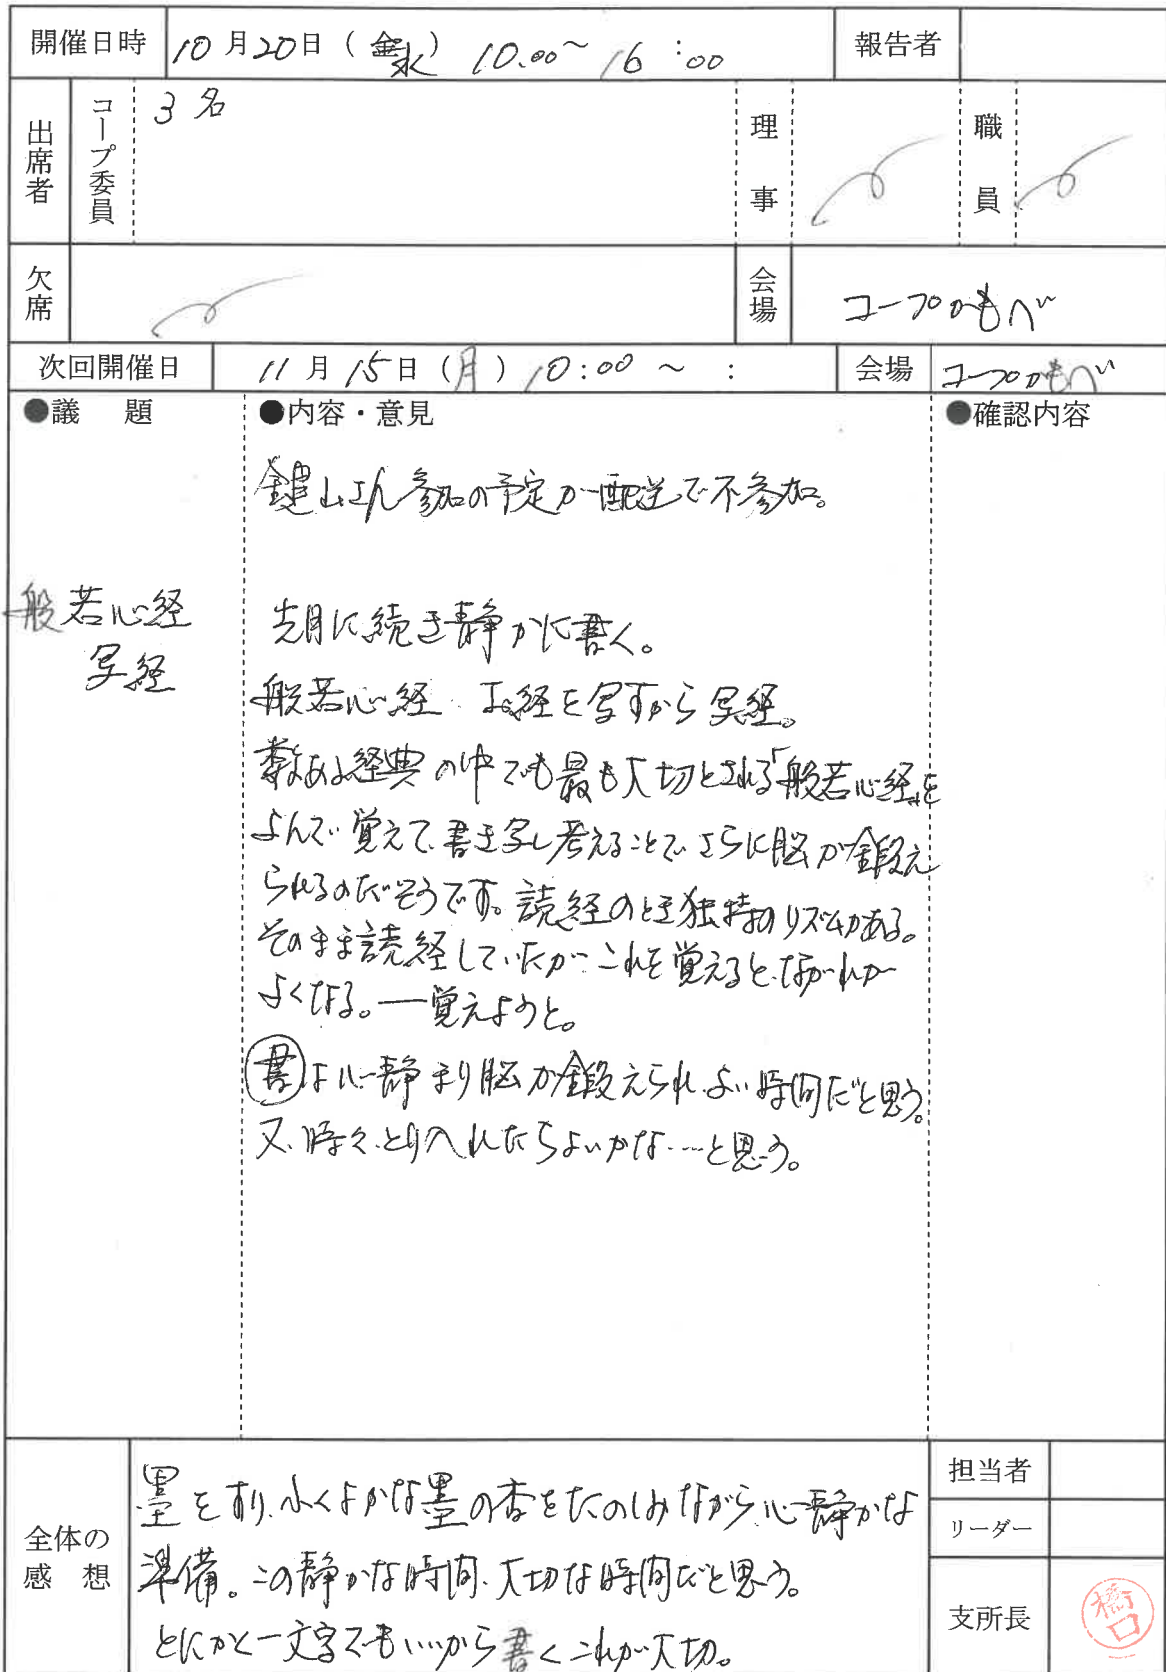 開催日時 10月20日(水) 10:00~16:00 報告者
出席者 コープ委員 3名 理事 職員
欠席 会場 コープかもべ
次回開催日 11月15日(月)10:00 ~ : 会場 コープかもべ
●議 題 ●内容・意見 ●確認内容
鍵山さん参加の予定が配送で不参加。
般若心経
写経
先月に続き静かに書く。
般若心経 お経を写すから写経。
数ある経典の中でも最も大切とされる「般若心経」を
よんで覚えて書き写し考えることでさらに脳が鍛え
られるのだそうです。読経のとき独特のリズムがある。
そのまま読経していたが これを覚えると、ながれが
よくなる。―覚えようと。
書は心静まり脳が鍛えられ、よい時間だと思う。
又、時々、とり入れたらよいかな…と思う。
全体の感想
墨をすり、ふくよかな墨の香をたのしみながら、心静かな
準備。この静かな時間、大切な時間だと思う。
とにかく一文字でもいいから書くこれが大切。
担当者
リーダー
支所長 橋口